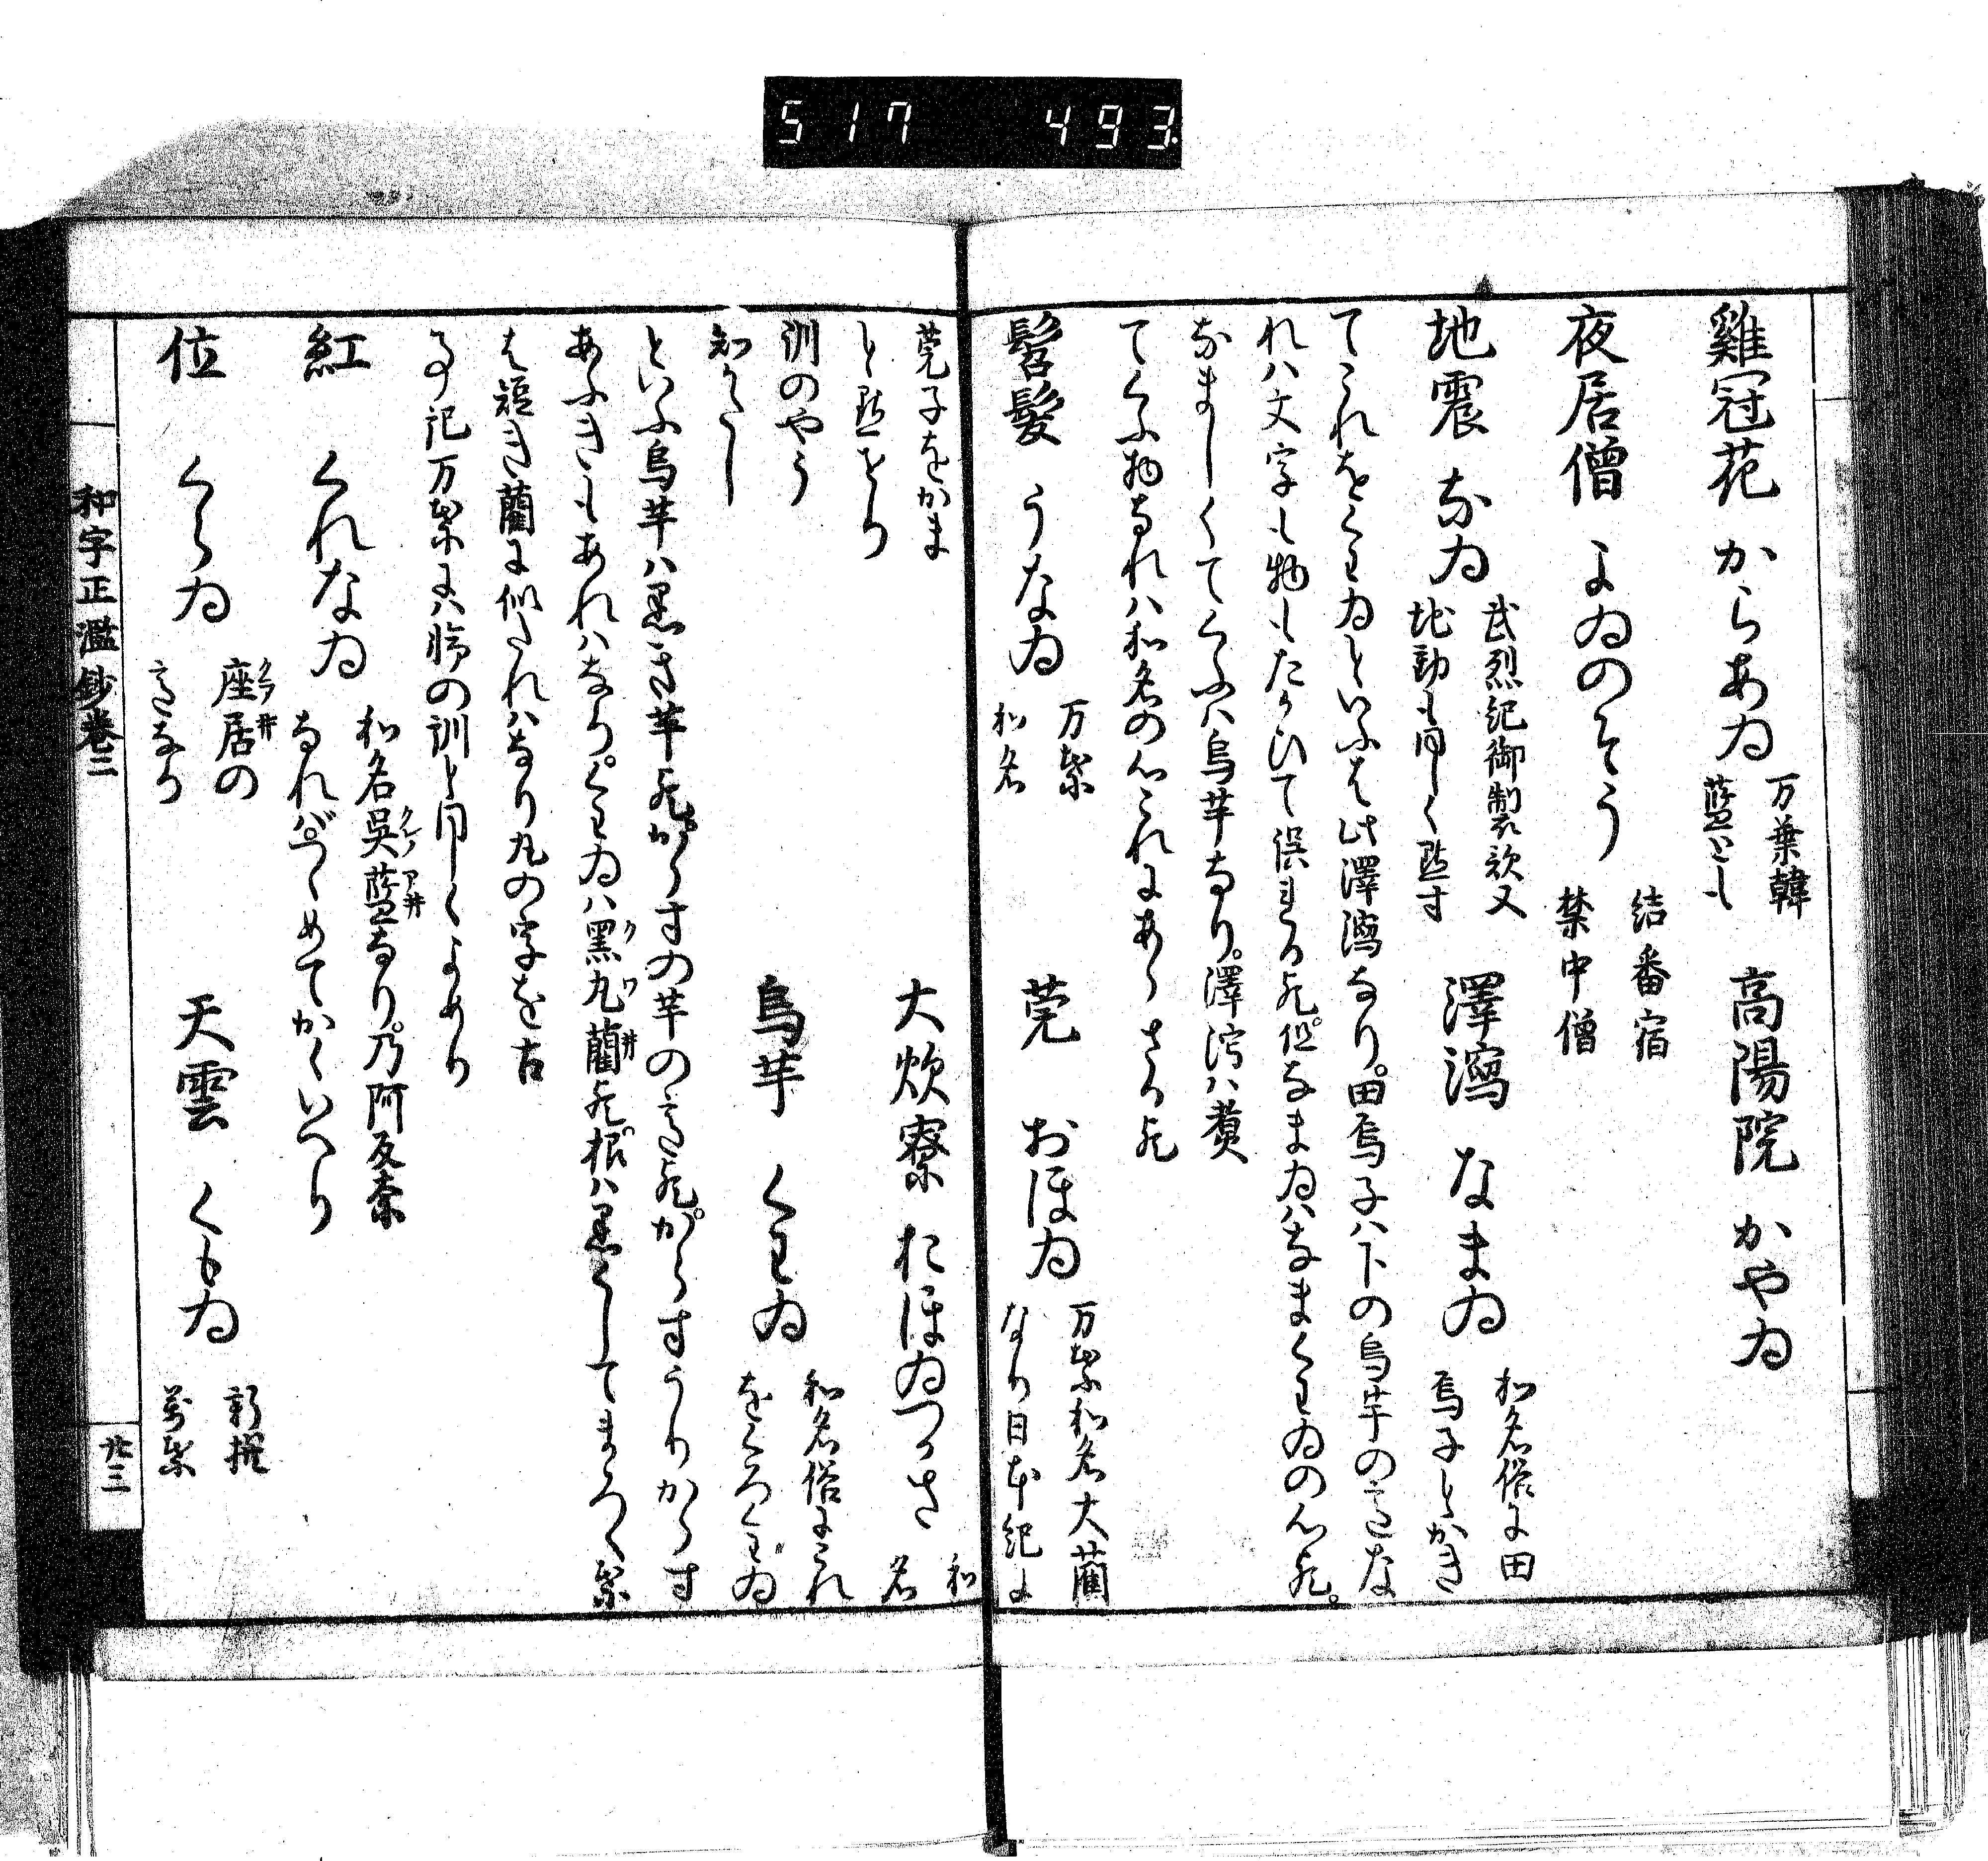 517 493
雞冠花 からあゐ 万葉韓
藍とも
高陽院 かやゐ
夜居僧 よゐのそう 結番宿
禁中僧
地震 なゐ 武烈紀御製歌又
地動も同しく点す
澤瀉 なまゐ 和名俗に田
烏子とかき
てこれをくわゐといふは此澤瀉なり。田烏子ハ下の烏芋のことな
れハ文字も物もたかひて誤れる歟。但なまゐハなまくわゐの心歟。
なましくてくふハ烏芋なり。澤瀉ハ煮
てくふ物なれハ和名の心これにあらさる歟
髫髪 うなゐ 万葉
和名
莞 おほゐ 万葉和名大藺
なり日本紀に
莞子をかま
と点せり
大炊寮 おほゐつかさ 和
名
訓のやう
知かたし
烏芋 くわゐ 和名俗にこれ
をくろくわゐ
といふ烏芋ハ黒き芋歟。からすの芋のこと歟。からすうりからす
あふきもあれハなり。くわゐハ黒丸藺歟。根ハ黒くしてまろく葉
は短き藺に似たれハなり丸の字を古
事記万葉にハ輪の訓と同しくよめり
紅 くれなゐ 和名呉藍なり。乃阿反奈
なれバつゝめてかくいへり
位 くらゐ 座居の
ことなり
天雲 くもゐ 新撰
万葉
和字正濫鈔卷三
廿三